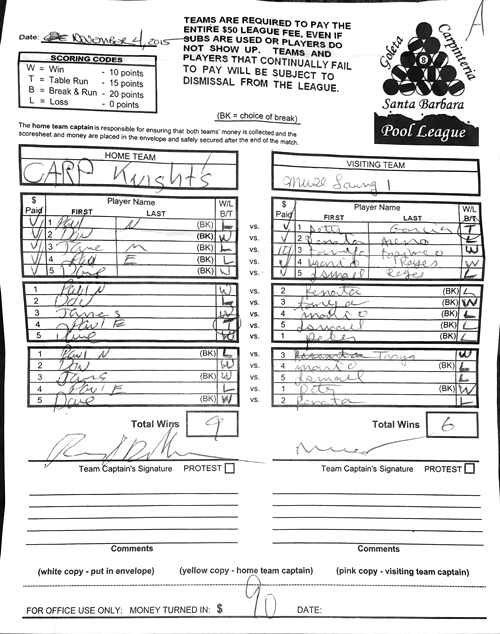 Date: NOVEMBER 4, 2015
TEAMS ARE REQUIRED TO PAY THE
ENTIRE $50 LEAGUE FEE, EVEN IF
SUBS ARE USED OR PLAYERS DO
NOT SHOW UP. TEAMS AND
PLAYERS THAT CONTINUALLY FAIL
TO PAY WILL BE SUBJECT TO
DISMISSAL FROM THE LEAGUE.
A
SCORING CODES
W = Win - 10 points
T = Table Run - 15 points
B = Break & Run - 20 points
L = Loss - 0 points
Goleta
Carpinteria
8
Santa Barbara
Pool League
(BK = choice of break)
The home team captain is responsible for ensuring that both teams' money is collected and the
scoresheet and money are placed in the envelope and safely secured after the end of the match.
HOME TEAM
CARP Knights
VISITING TEAM
1
$ Paid Player Name W/L B/T
FIRST LAST
$ Paid Player Name W/L B/T
FIRST LAST
1 Paul N (BK) L vs. 1 Garcia T
2 (BK) W vs. 2 Renata L
3 M L vs. 3 W
4 Paul E (BK) L vs. 4 Mario Reyes W
5 Dave W vs. 5 Ismail Reyes L
1 Paul N W vs. 2 Renata (BK) L
2 Dav L vs. 3 Tanya (BK) W
3 James W vs. 4 Mario (BK) L
4 Paul E T vs. 5 Ismail (BK) L
5 Dave W vs. 1 (BK) L
1 Paul N (BK) L vs. 3 Tanya W
2 (BK) W vs. 4 Mario L
3 (BK) W vs. 5 Ismail L
4 Paul E L vs. 1 (BK) W
5 Dave W vs. 2 Renata L
Total Wins 9
Total Wins 6
Team Captain's Signature PROTEST
Team Captain's Signature PROTEST
Comments
Comments
(white copy - put in envelope) (yellow copy - home team captain) (pink copy - visiting team captain)
FOR OFFICE USE ONLY: MONEY TURNED IN: $ 90 DATE: